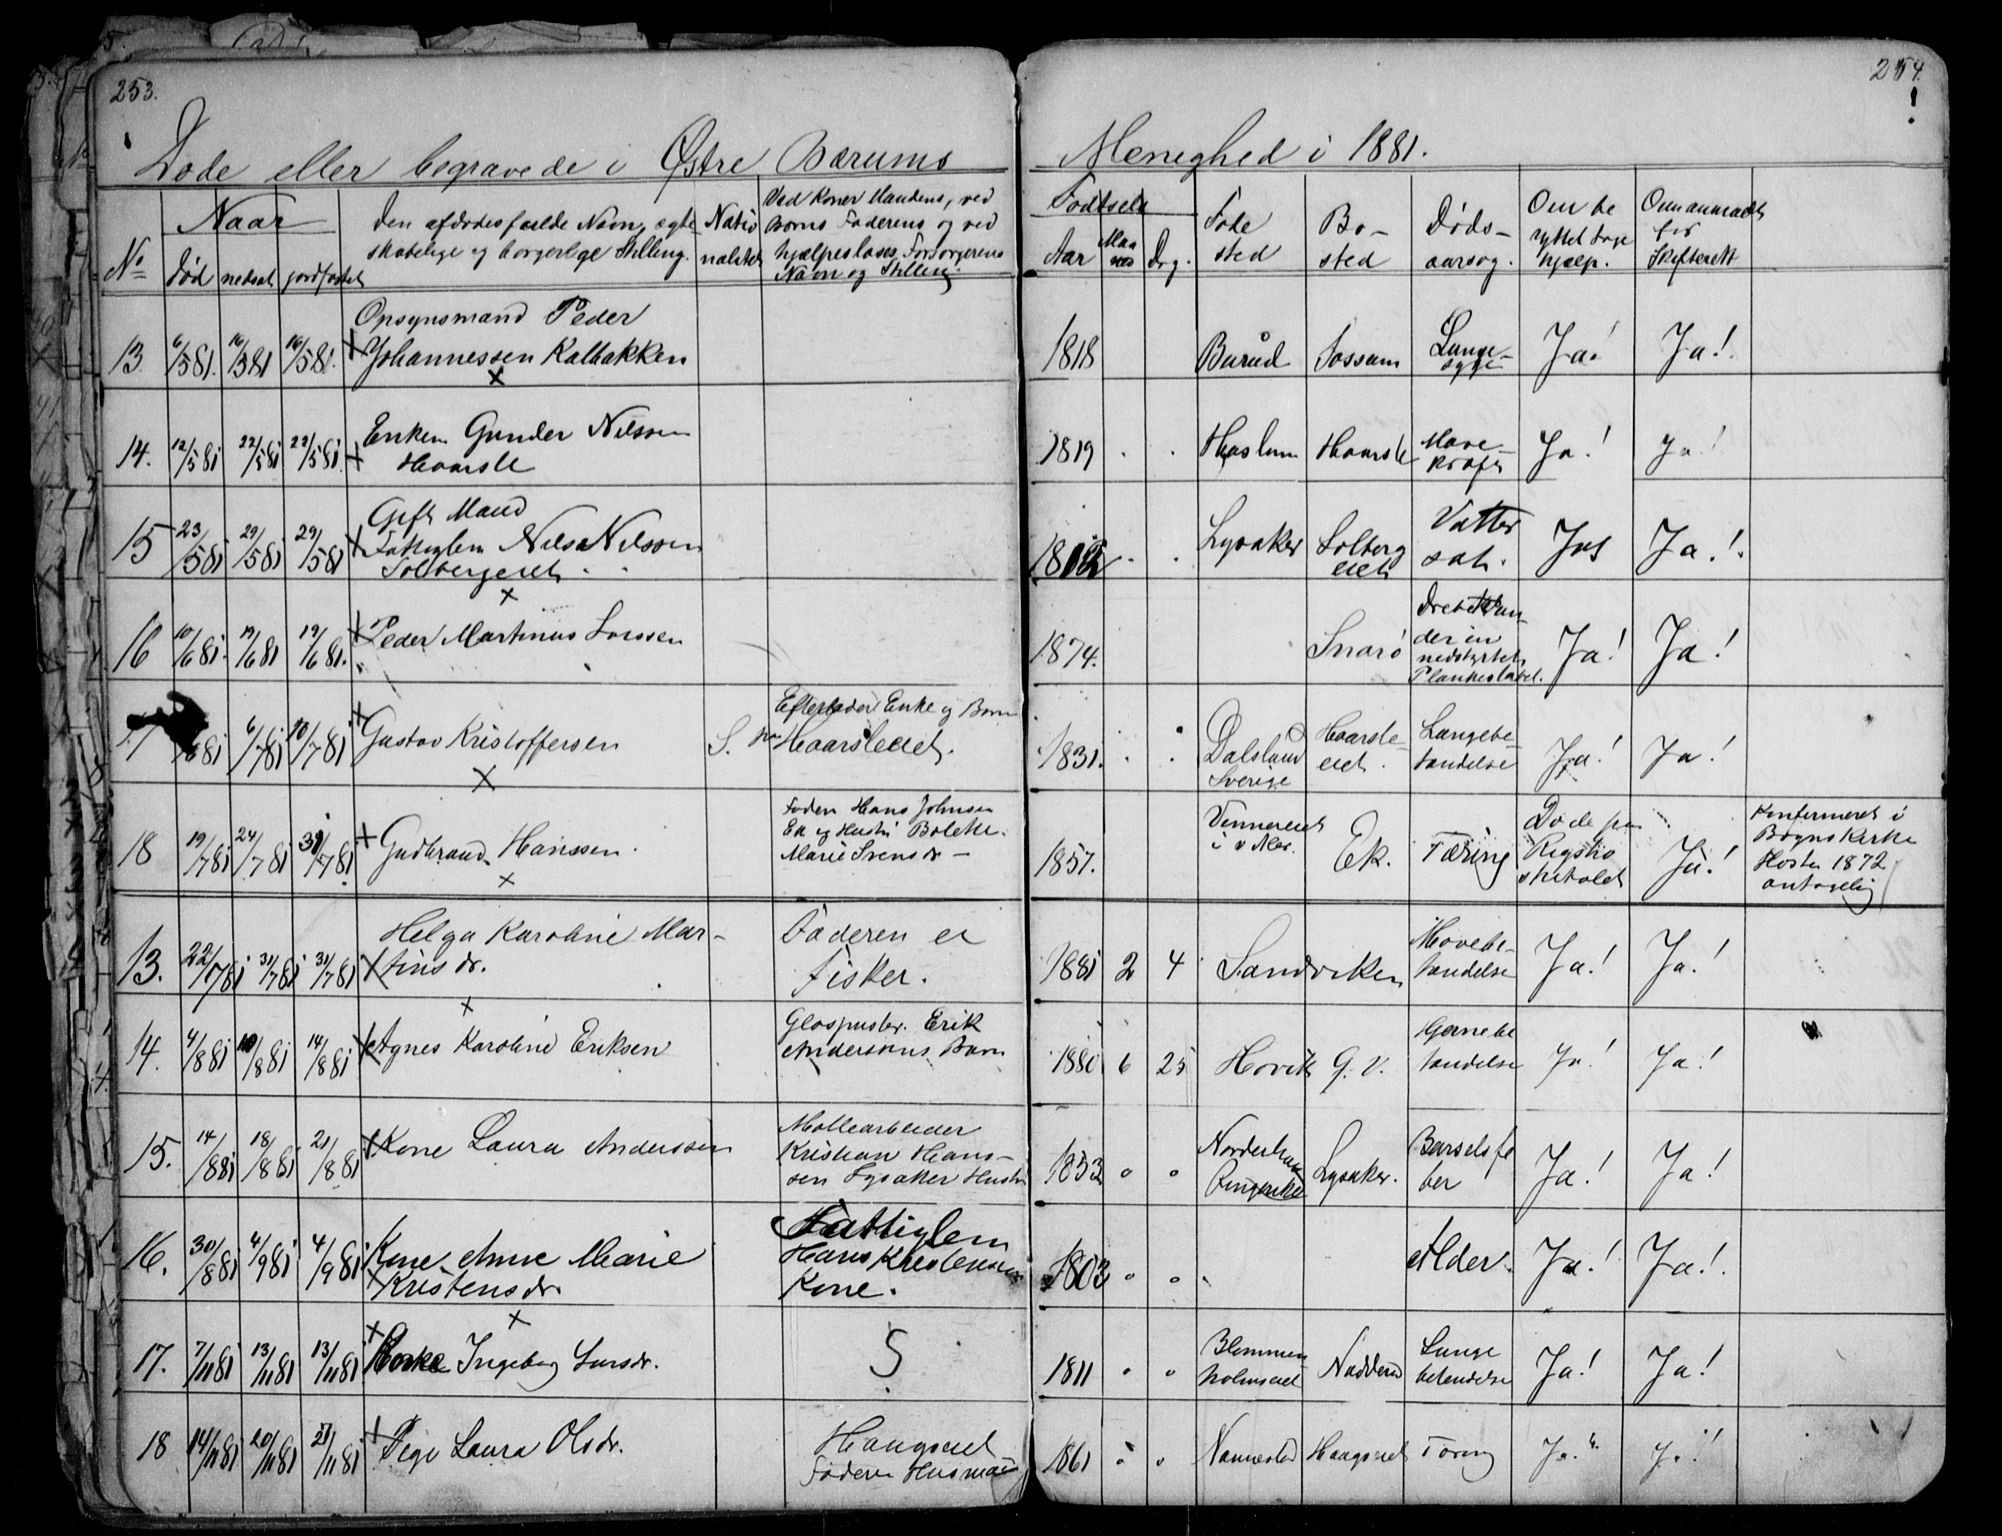 253.
254.
Døde eller begravede i Østre Bærums Menighed i 1881.
No
Naar
død nedsat jordfæstet
Den afdødes fulde Navn, ægte
skabelige og borgerlige Stilling.
Natio
nalitet
Ved Koner Mandens, ved
Børns Faderens og ved
hjælpesløses Forsørgerens
Navn og Stilling.
Fødsels
Aar Maa
ned Dag.
Føde
sted
Bo-
sted
Døds-
aarsag.
Om be
nyttet Læge
hjælp.
Om anmeldt
for
Skifterett
13. 6/5 81. 16/5 81 16/5 81. Opsynsmand Peder
Johannessen Kalbakken
1818 Burud Fossum Lunge-
syge Ja! Ja!
14. 12/5 81 22/5 81 22/5 81. Enken Gunder Nilssen
Haarsle
1819 Haslum Haarsle Mave-
kræft Ja! Ja!
15 23/5 81 29/5 81 29/5 81 Gift Mand
Fattiglem Nils Nilssen
Solbergeiet
Lysaker Solberg
eiet Vatter
sot. Ja! Ja!
16 10/6 81. 19/6 81 19/6 81. Peder Martinus Larssen
1874. Snarø
der en
nedstyrtet
Plankestabel. Ja! Ja!
/6 81 6/7 81 10/7 81 Gustav Kristoffersen S.
Efterlader Enke og Børn
Haarsleeiet.
1831. Dalsland
Sverige Haarsle-
eiet. Lungebe-
tændelse Ja! Ja!
18 19/7 81 24/7 81 31/7 81 Gudbrand Hanssen.
Faderen Hans Johnsen
Ek og Hustru Bolette
Marie Svensdr
1857. Ek. Tæring Døde paa
Rigsho
spitalet Ja!
Konfirmeret i
Bogns Kirke
Høsten 1872
antagelig
13. 22/7 81 31/7 81 31/7 81 Helga Karoline Mar-
tinsdr.
Faderen er
Fisker.
1881 2 4 Sandviken Mavebe-
tændelse Ja! Ja!
14. 4/8 81 10/8 81 14/8 81 Agnes Karoline Eriksen
Glaspuster. Erik
Anderssens Barn
1880 6 25 Høvik G. V.
tændelse Ja! Ja!
15. 14/8 81 18/8 81 21/8 81 Kone Laura Anderssen
Møllearbeider
Kristian Hans-
sen Lysaker Hustru
1853 Norderhov
Ringerike Lysaker. Barselsfe
ber Ja! Ja!
16. 30/8 81 4/9 81 4/9 81 Kone Anne Marie
Kristensdr.
Fattiglem
Hans Kristensen
Kone.
1803 Alder. Ja! Ja!
17. 7/11 81 13/11 81 13/11 81 Enke Ingeborg Larsdr.
S
1811 Blommen
holmeiet Nadderud Lunge
betændelse Ja! Ja!
18 14/11 81 20/11 81 21/11 81 Pige Laura Olsdr.
Haugseiet
Faderen Husmand
1861 Nannestad Haugseiet Tæring Ja! Ja!